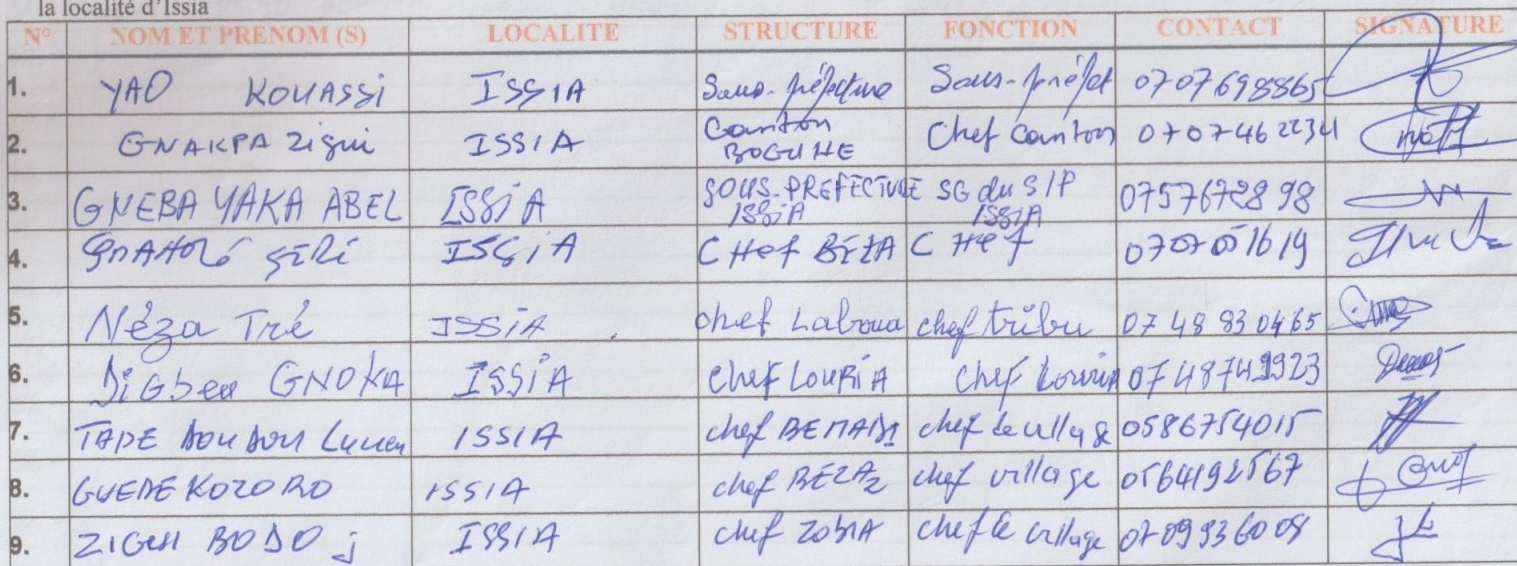 la localité d'Issia
N° NOM ET PRENOM (S) LOCALITE STRUCTURE FONCTION CONTACT SIGNATURE
1. YAO KOUASSI ISSIA Sous-préfecture Sous-préfet 0707698865
2. GNAKPA Zigui ISSIA Canton BOGUHE Chef Canton 0707462234
3. GNEBA YAKA ABEL ISSiA SOUS-PREFECTURE ISSiA SG du S/P ISSiA 0757672898
4. GNAHORÉ ISSiA CHef BÉZA CHef 0707051619
5. Néza Tré ISSiA chef Laboua chef tribu 0748830465
6. DiGbeu GNOKA ISSiA Chef LOURiA Chef Louria 0748749923
7. TAPE Lucien ISSIA chef chef de village 0586754015
8. GUEDE KOZORO ISSIA chef BEZA2 chef village 0564192567
9. BODO j ISSIA chef ZOBIA chef de village 0709936008